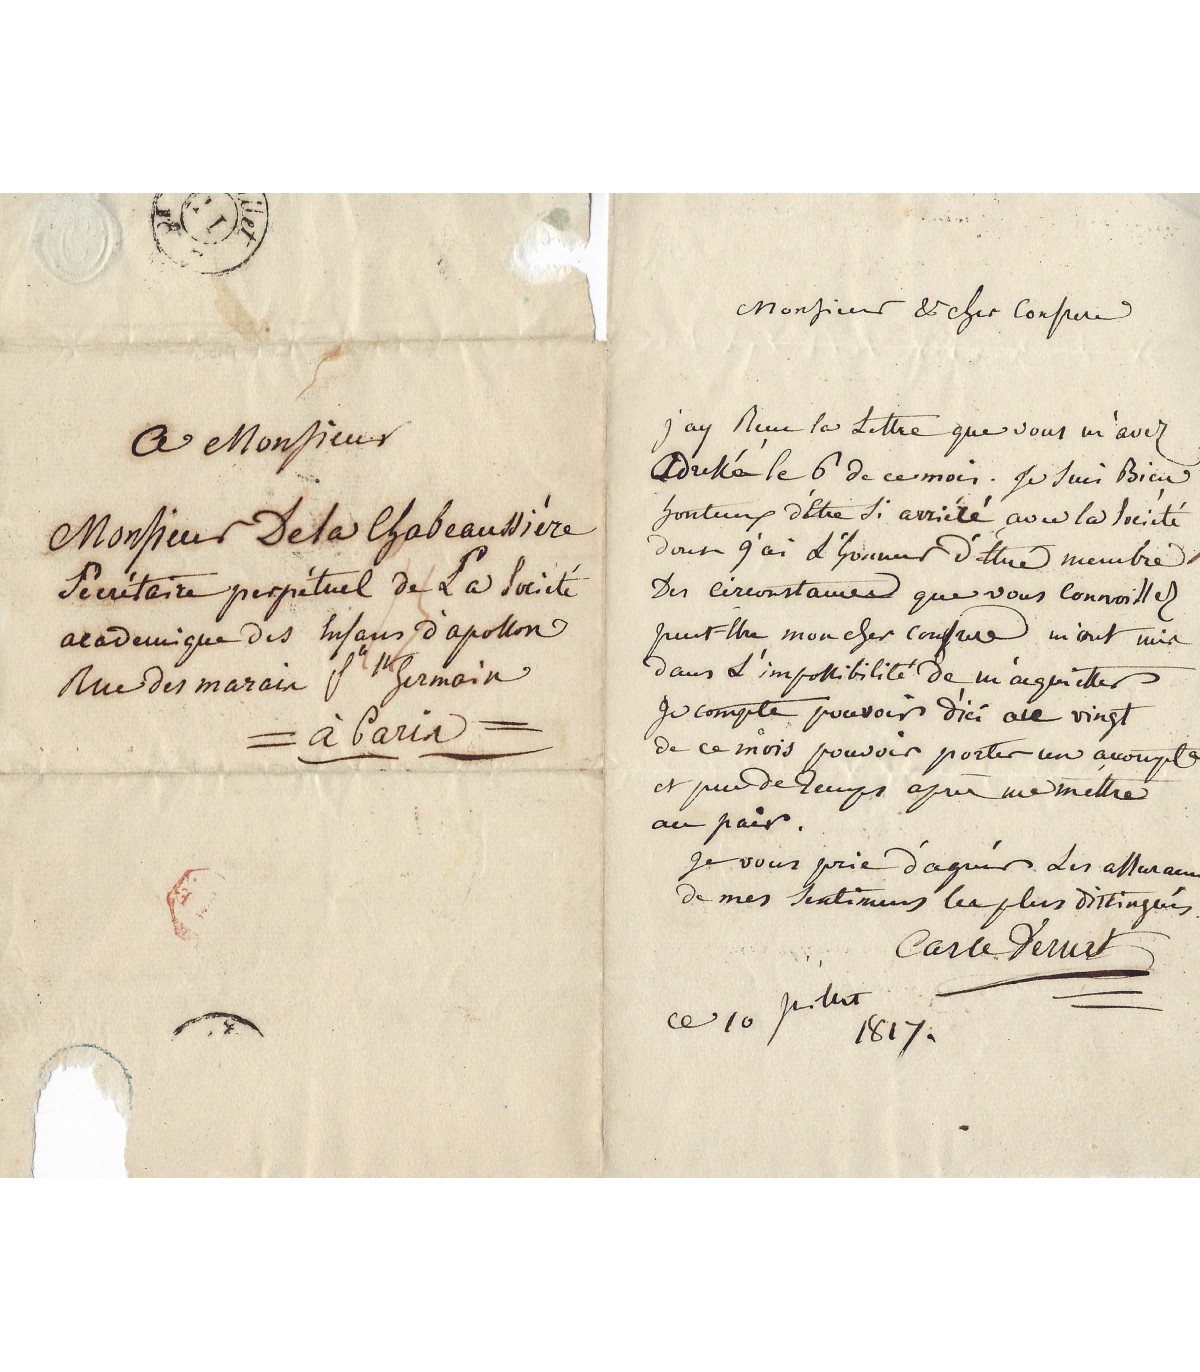 A Monsieur
Monsieur De la Chabeaussière
Secrétaire perpétuel de La Société
académique des Enfans d'apollon
Rue des marais fg St Germain
= à Paris =
Monsieur & cher Confrere
j'ay Recu la Lettre que vous m'avez
Adressé le 6 de ce mois. Je Suis Bien
honteux d'être Si arriéré avec la Société
dont j'ai L'honneur d'être membre
Des circonstances que vous Connoissez
peut-être mon cher confrere m'ont mis
dans L'impossibilité De m'acquitter
Je compte pouvoir d'ici au vingt
de ce mois pouvoir porter un acompte
et peu de temps après me mettre
au pair.
Je vous prie d'agréer Les assurances
de mes Sentimens les plus distingués.
Carle Vernet
ce 10 juillet
1817.